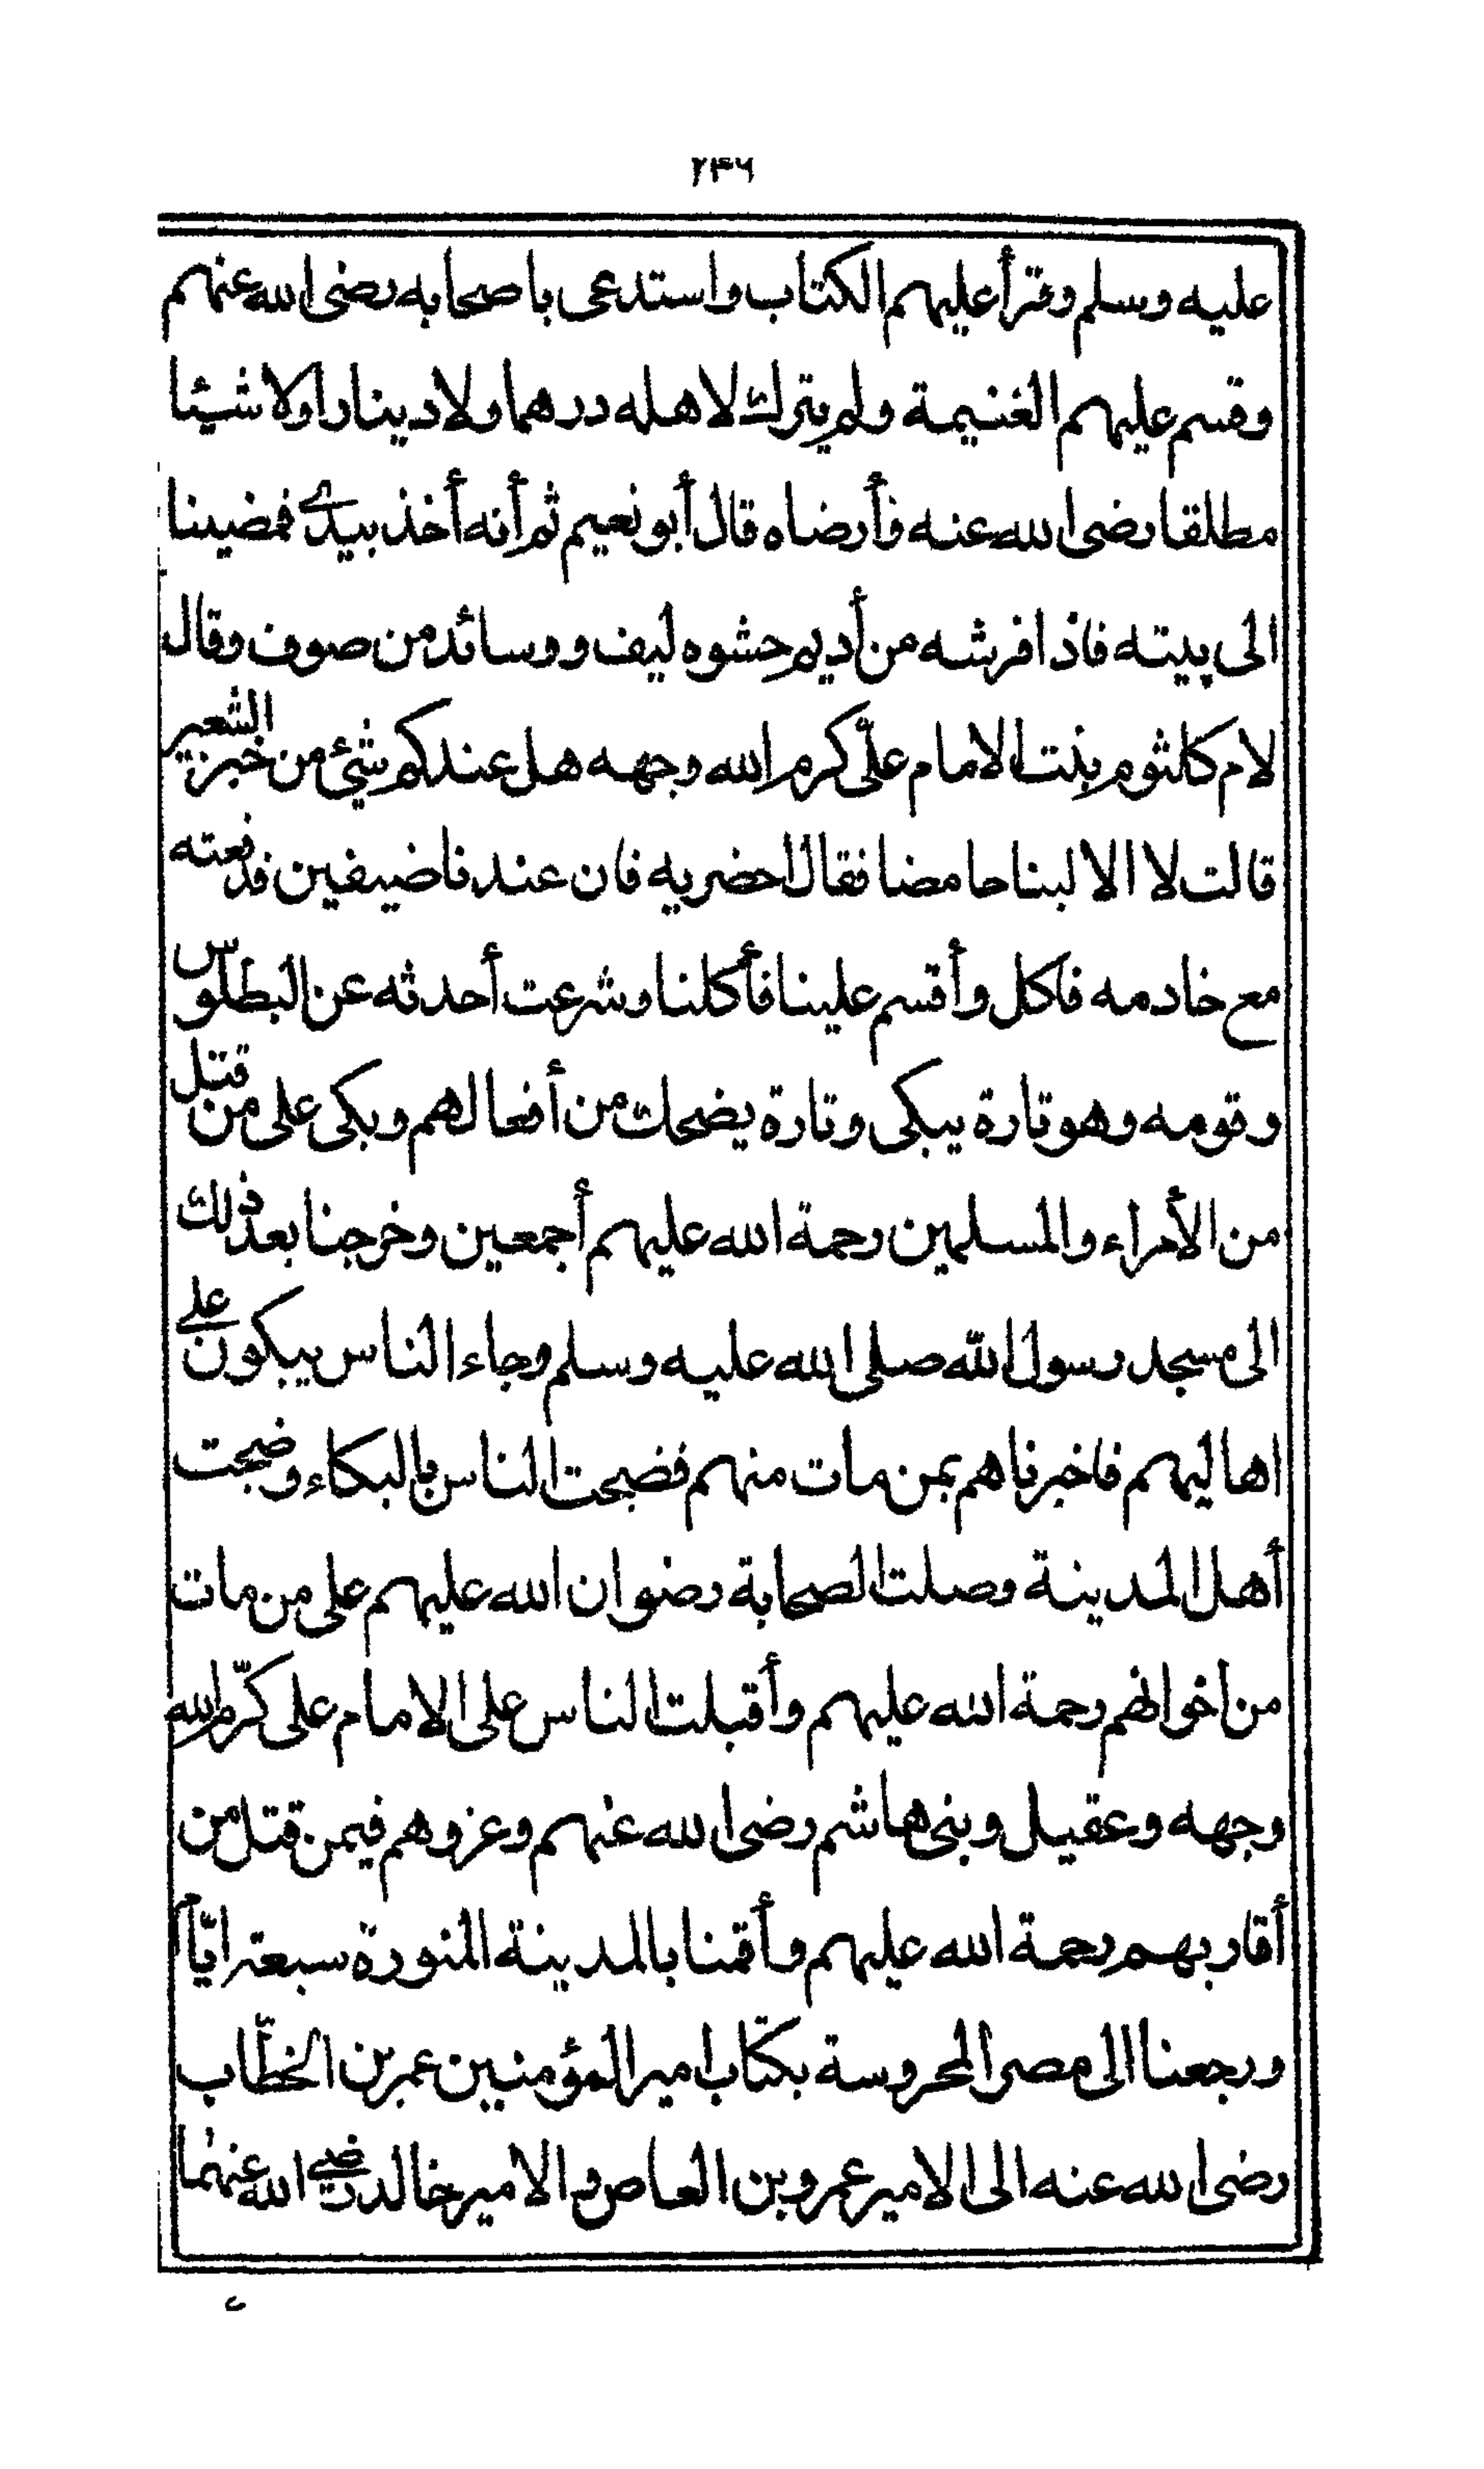 ٢٣٦
عليه وسلم وقرأ عليهم الكتاب واستدعى باصحابه رضى الله عنهم
وقسم عليهم الغنيمة ولم يترك لاهله درهما ولا دينارا ولا شيئا
مطلقا رضى الله عنه وأرضاه قال أبو نعيم ثم أنه أخذ بيدي فمضينا
الى بيته فاذا فرشه من أديم حشوه ليف ووسائد من صوف وقال
لام كلثوم بنت الامام علىّ كرم الله وجهه هل عندكم شيئ من خبز الشعير
قالت لا الا لبنا حامضا فقال احضريه فان عندنا ضيفين فدفعته
مع خادمه فاكل وأقسم علينا فأكلنا وشرعت أحدثه عن البطلوس
وقومه وهو تارة يبكى وتارة يضحك من أفعالهم وبكى على من قتل
من الأمراء والمسلمين رحمة الله عليهم أجمعين وخرجنا بعد ذلك
الى مسجد رسول الله صلى الله عليه وسلم وجاء الناس يبكون على
اهاليهم فاخبرناهم بمن مات منهم فضجت الناس بالبكاء وضجت
أهل المدينة وصلت الصحابة رضوان الله عليهم على من مات
من اخوانهم رحمة الله عليهم وأقبلت الناس على الامام على كرّم الله
وجهه وعقيل وبنى هاشم رضى الله عنهم وعزوهم فيمن قتل من
أقاربهم رحمة الله عليهم وأقمنا بالمدينة المنورة سبعة ايّام
ورجعنا الى مصر المحروسة بكتاب امير المؤمنين عمر بن الخطّاب
رضى الله عنه الى الامير عمرو بن العاص والامير خالد رضى الله عنهما